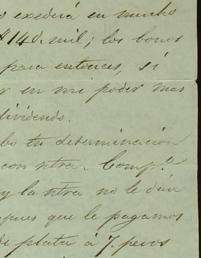 exederá en mucho
$140. mil; los bonos
para entonces, si
en mi poder mas
dividendo.
bo tu determinacion
con ntra. Comp.ª
y la ntra no le dán
pues que le pagamos
de plata á 7. pesos